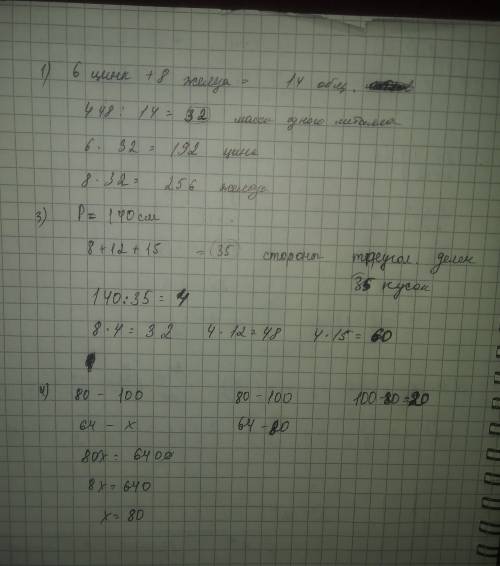 1) 6 цинк + 8 железа = 14 общ.
448 : 14 = 32 масса одного металла
6 · 32 = 192 цинк
8 · 32 = 256 железо
3) P = 140 см
8 + 12 + 15 = 35 стороны треугол. делен
35 кусок
140 : 35 = 4
8 · 4 = 32 4 · 12 = 48 4 · 15 = 60
4) 80 - 100 80 - 100 100 - 80 = 20
64 - x 64 - 80
80x = 6400
8x = 640
x = 80